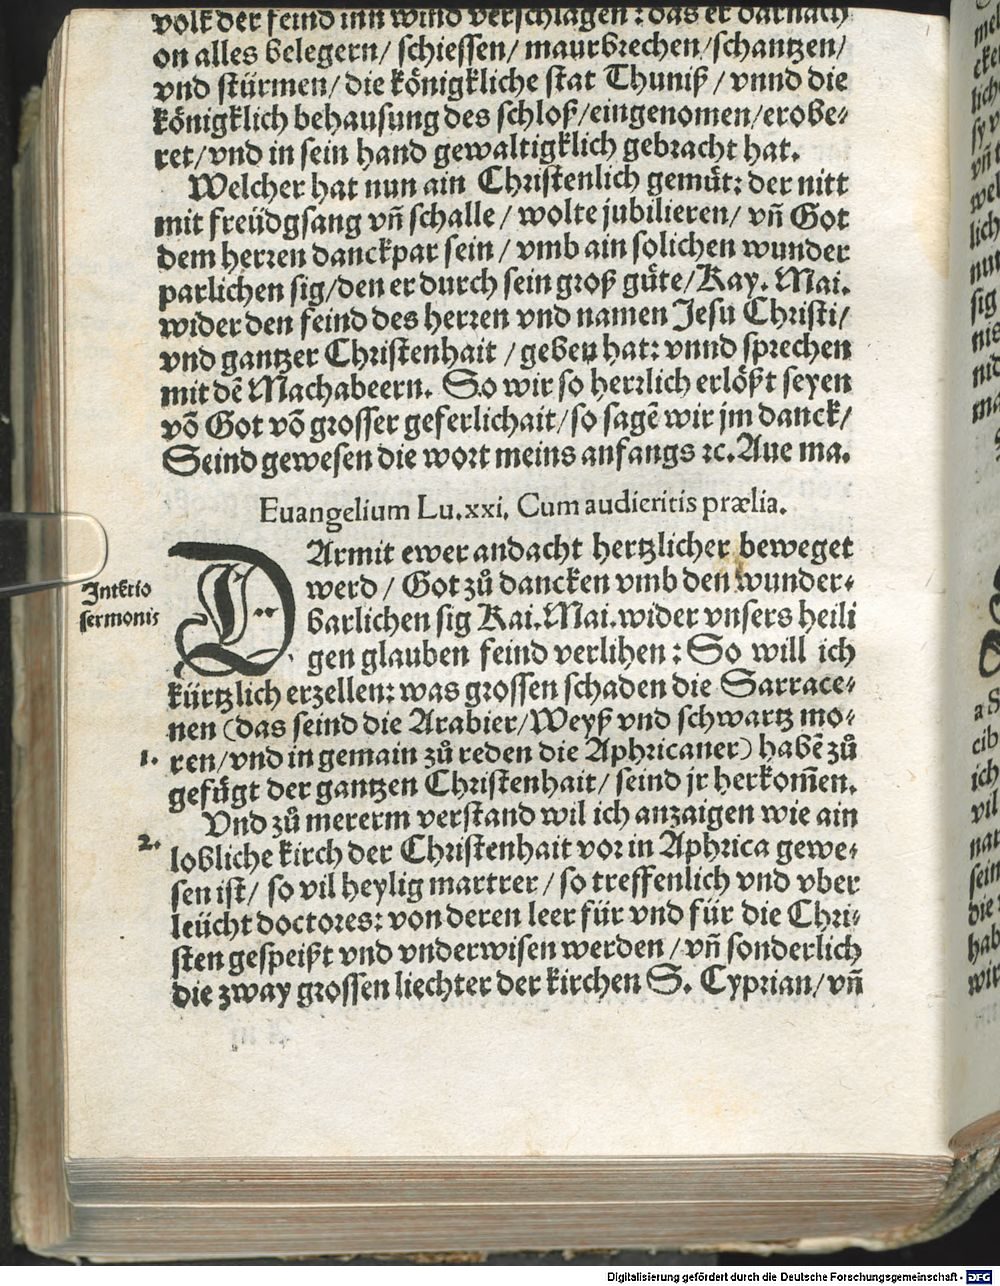 volk der feind inn wind verschlagen: das er darnach
on alles belegern/ schiessen/ maurbrechen/ schantzen/
vnd stürmen/ die königkliche stat Thuniß/ vnnd die
königklich behausung des schloß/ eingenomen/ erobe-
ret/ vnd in sein hand gewaltigklich gebracht hat.
Welcher hat nun ain Christenlich gemüt: der nitt
mit freüdgsang vñ schalle/ wolte jubilieren/ vñ Got
dem herren danckpar sein/ vmb ain solichen wunder
parlichen sig/ den er durch sein groß güte/ Kay. Mai.
wider den feind des herren vnd namen Jesu Christi/
vnd gantzer Christenhait/ geben hat: vnnd sprechen
mit dẽ Machabeern. So wir so herrlich erlößt seyen
võ Got võ grosser geferlichait/ so sagẽ wir jm danck/
Seind gewesen die wort meins anfangs ꝛc. Aue ma.
Euangelium Lu.xxi. Cum audieritis prælia.
DArmit ewer andacht hertzlicher beweget
werd/ Got zů dancken vmb den wunder-
Intẽtio
barlichen sig Kai. Mai. wider vnsers heili
sermonis
gen glauben feind verlihen: So will ich
kürtzlich erzellen: was grossen schaden die Sarrace-
nen (das seind die Arabier/ Weyß vnd schwartz mo-
1. ren/ vnd in gemain zů reden die Aphricaner) habẽ zů
gefügt der gantzen Christenhait/ seind jr herkom̃en.
Vnd zů mererm verstand wil ich anzaigen wie ain
2. lobliche kirch der Christenhait vor in Aphrica gewe-
sen ist/ so vil heylig martrer/ so treffenlich vnd vber
leücht doctores: von deren leer für vnd für die Chri-
sten gespeißt vnd vnderwisen werden/ vñ sonderlich
die zway grossen liechter der kirchen S. Cyprian/ vñ
Digitalisierung gefördert durch die Deutsche Forschungsgemeinschaft - DFG